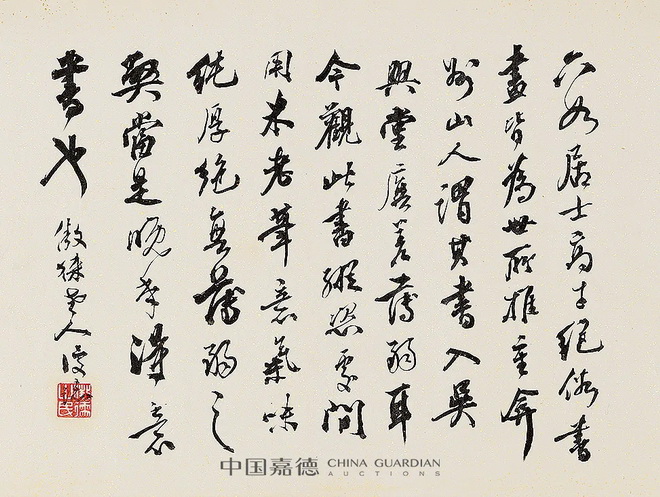 六如居士高才絕俗書
畫皆為世所推重弇
州山人謂其書入吳
興堂廡差薄弱耳
今觀此書縱恣處間
用米老筆意氣味
純厚絕無薄弱之
獘當是晚年得意
書也
傲徠山人
中国嘉德 CHINA GUARDIAN
AUCTIONS